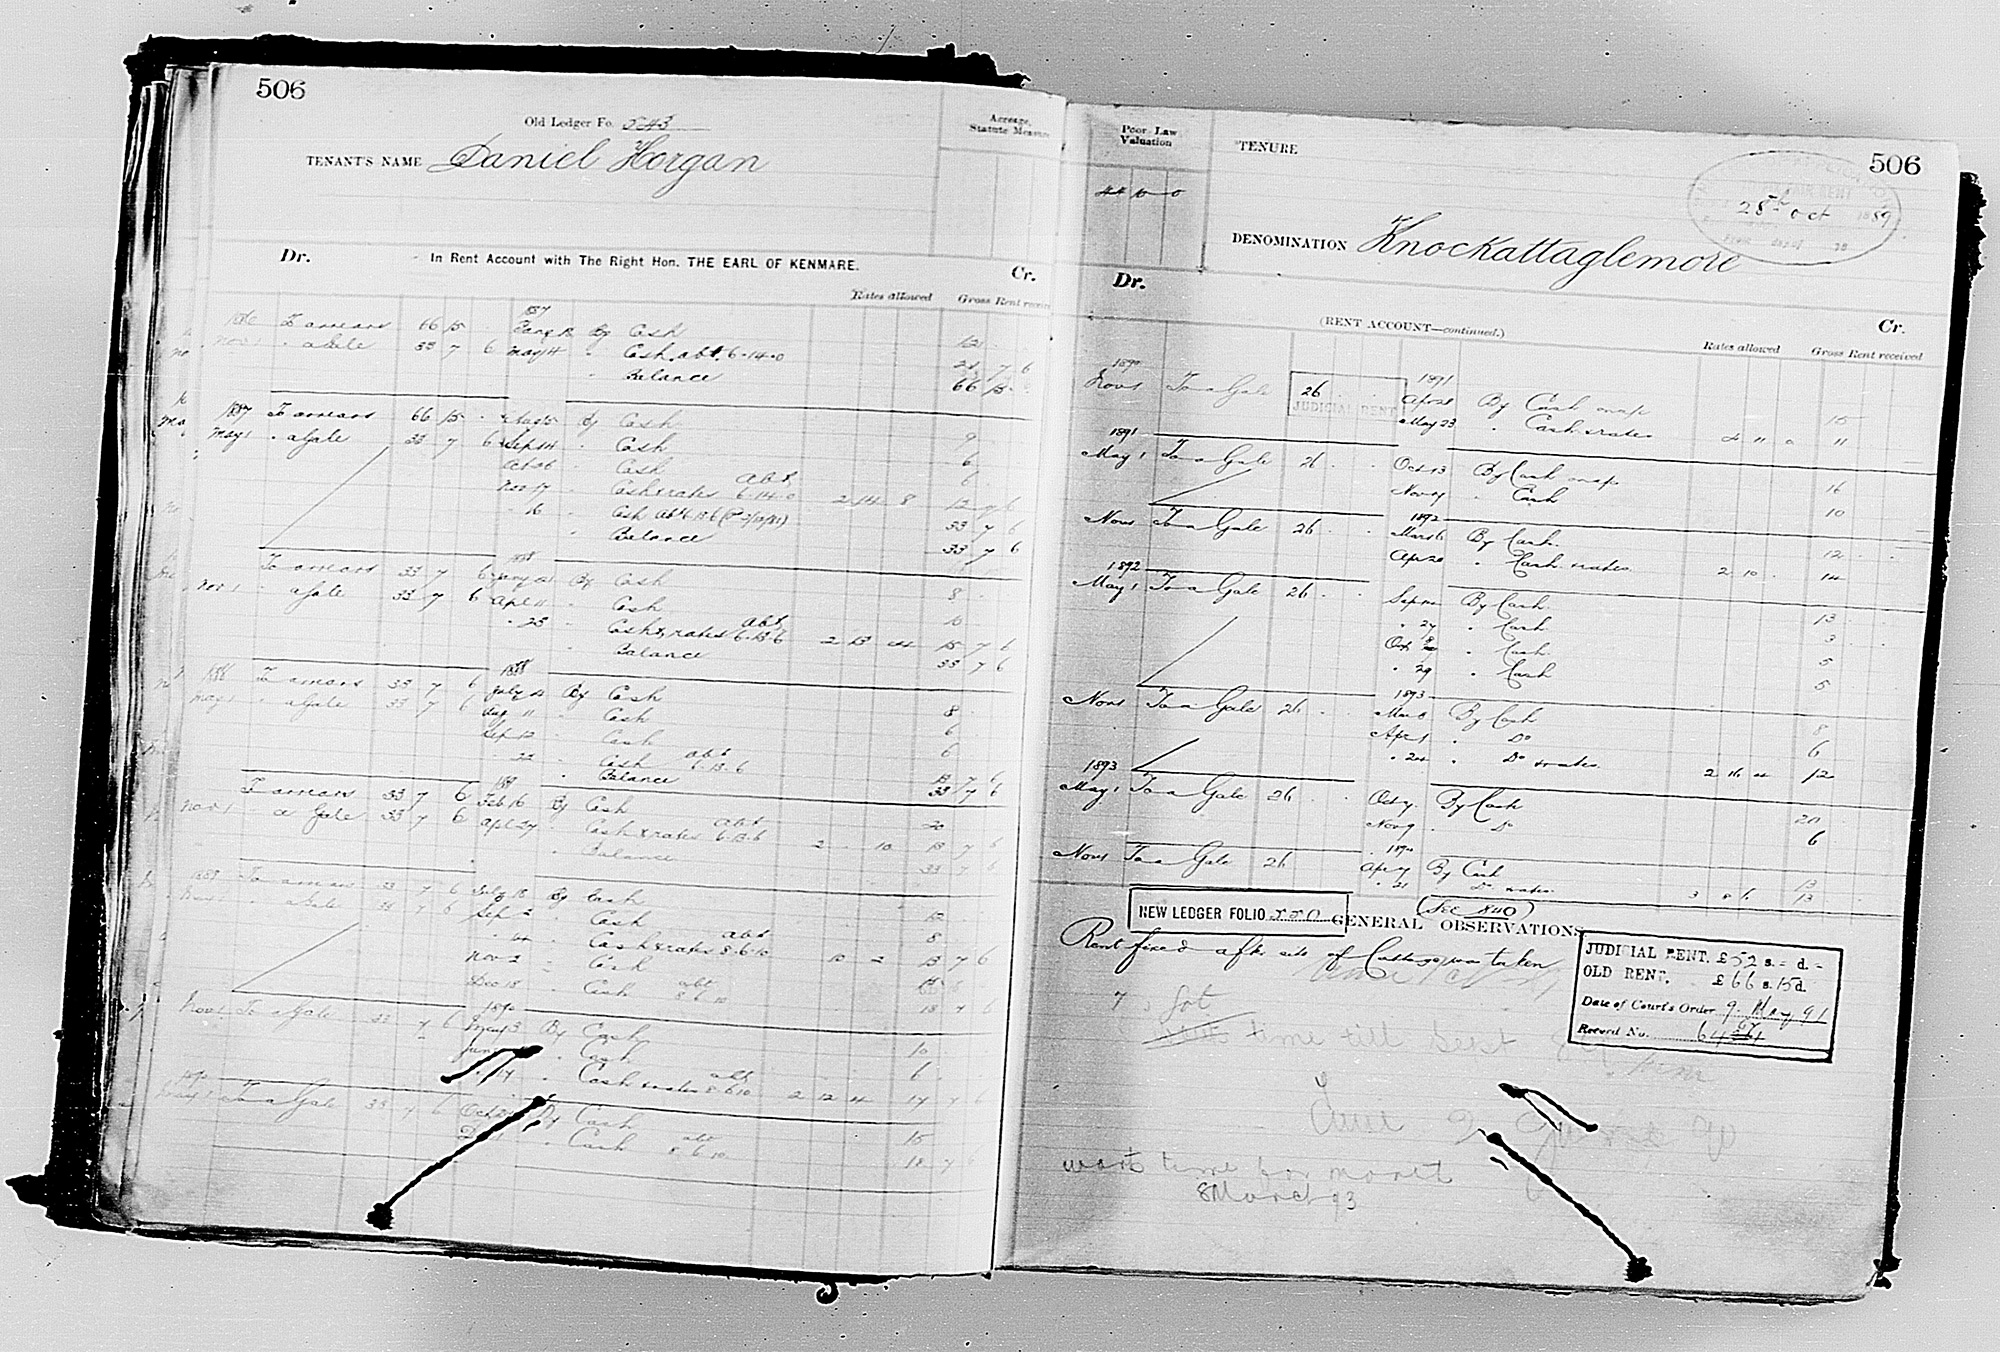 506
Old Ledger Fo. 543
TENANT'S NAME Daniel Horgan
Acreage, Statute Measure
Dr. In Rent Account with The Right Hon. THE EARL OF KENMARE. Cr.
Rates allowed Gross Rent
1887
1886 To arrears 66 15 By Cash 12
Nov 1 " a Gale 33 7 6 May 14 " Cash abt. 6-14-0 21 7 6
" Balance 66 15
1887 To arrears 66 15 Aug 5 By Cash 9
May 1 " a Gale 33 7 6 Sep 14 " Cash 6
Oct 26 " Cash 6
Nov 17 " Cash & rates abt 6-14-0 2 14 8 12 7 6
" 16 " Cash abt 6-13-6 33 7 6
" Balance 33 7 6
1888
To arrears 33 7 6 By Cash 8
Nov 1 " a Gale 33 7 6 Apl 11 " Cash 10
" 25 " Cash & rates abt 6-13-6 2 13 4 15 7 6
" Balance 33 7 6
1888
1888 To arrears 33 7 6 July 4 By Cash 8
May 1 " a Gale 33 7 6 Aug 11 " Cash 6
Sep 12 " Cash 6
" 22 " Cash abt 6-13-6 13 7 6
" Balance 33 7 6
1889
To arrears 33 7 6 Feb 16 By Cash 20
Nov 1 " a Gale 33 7 6 Apl 27 " Cash & rates abt 6-13-6 2 10 13 7 6
" Balance 33 7 6
1889 To arrears 33 7 6 July 18 By Cash 12
May 1 " a Gale 33 7 6 Sep 2 " Cash 8
" Cash & rates abt 8-6-10 10 2 13 7 6
Nov 2 " Cash 15
Dec 18 " Cash abt 8 6 10 18 7 6
1890
Nov 1 To a Gale 33 7 6 May 3 By Cash 10
June " Cash 6
" 14 " Cash & rates abt 8-6-10 2 12 4 17 7 6
1890
May 1 To a Gale 33 7 6 Oct By Cash 15
" Cash abt 8 6 10 18 7 6
Poor Law Valuation
TENURE
506
44 10 0
28th Oct 1889
DENOMINATION Knockattaglemore
Dr. (RENT ACCOUNT—continued.) Cr.
Rates allowed Gross Rent received
1890 1891
Nov 1 To a Gale 26 Apr 28 By Cash 15
JUDICIAL RENT
May 23 " Cash & rates 4 11 0 11
1891
May 1 To a Gale 26 Oct 13 By Cash 16
Nov 4 " Cash 10
1892
Nov 1 To a Gale 26 Mar 6 By Cash 12
Apr 20 " Cash & rates 2 10 14
1892
May 1 To a Gale 26 Sep By Cash 13
" 27 " Cash 3
Oct 8 " Cash 5
" 29 " Cash 5
1893
Nov 1 To a Gale 26 Mar 8 By Cash 8
Apr 1 " Do 6
" 24 " Do & rates 2 16 4 12
1893
May 1 To a Gale 26 Oct 7 By Cash 20
Nov 9 " Do 6
1894
Nov 1 To a Gale 26 Apr By Cash 13
" 21 Do & rates 3 8 6 13
NEW LEDGER FOLIO 550
(See 840)
GENERAL OBSERVATIONS
Rent fixed after site of Cottage was taken
JUDICIAL RENT. £52 s. - d. -
OLD RENT. £66 s. 15 d.
Date of Court's Order 9 May 91
Record No.
time till Sept
June
want time for
8 March 93